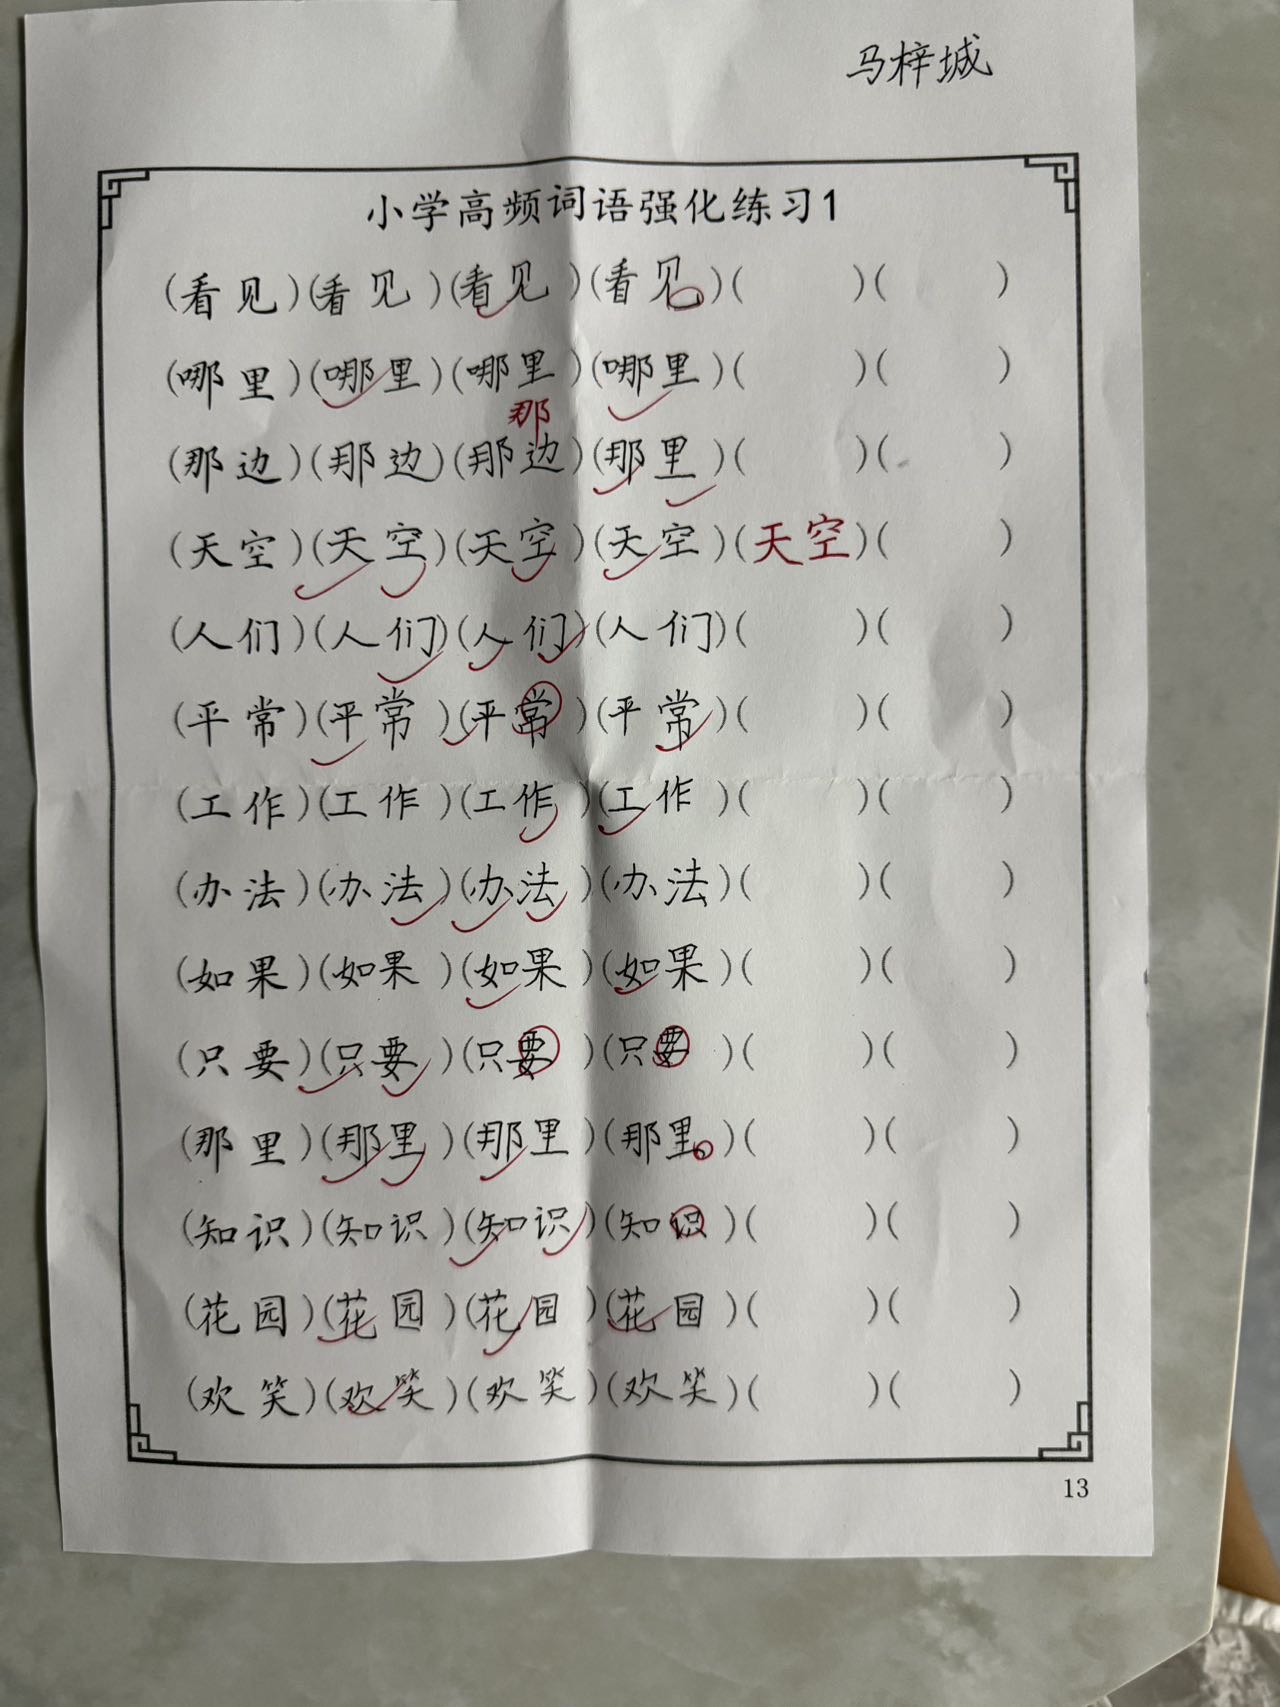 马梓城
小学高频词语强化练习1
(看见)(看见)(看见)(看见)( )( )
(哪里)(哪里)(哪里)(哪里)( )( )
那
(那边)(那边)(那边)(那里)( )( )
(天空)(天空)(天空)(天空)(天空)( )
(人们)(人们)(人们)(人们)( )( )
(平常)(平常)(平常)(平常)( )( )
(工作)(工作)(工作)(工作)( )( )
(办法)(办法)(办法)(办法)( )( )
(如果)(如果)(如果)(如果)( )( )
(只要)(只要)(只要)(只要)( )( )
(那里)(那里)(那里)(那里)( )( )
(知识)(知识)(知识)(知识)( )( )
(花园)(花园)(花园)(花园)( )( )
(欢笑)(欢笑)(欢笑)(欢笑)( )( )
13